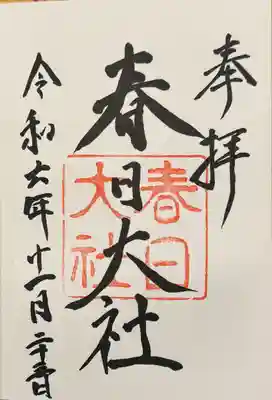 奉拝
春日大社
春日
大社
令和六年十一月二十三日